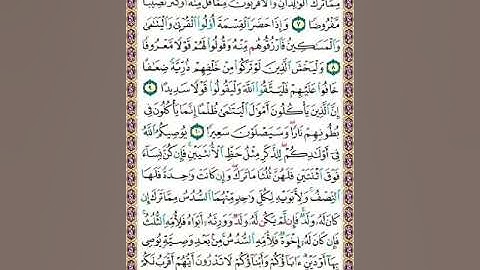 مِّمَّا تَرَكَ ٱلْوَٰلِدَانِ وَٱلْأَقْرَبُونَ مِمَّا قَلَّ مِنْهُ أَوْ كَثُرَ نَصِيبًا
مَّفْرُوضًا ٧ وَإِذَا حَضَرَ ٱلْقِسْمَةَ أُو۟لُوا۟ ٱلْقُرْبَىٰ وَٱلْيَتَٰمَىٰ
وَٱلْمَسَٰكِينُ فَٱرْزُقُوهُم مِّنْهُ وَقُولُوا۟ لَهُمْ قَوْلًا مَّعْرُوفًا
٨ وَلْيَخْشَ ٱلَّذِينَ لَوْ تَرَكُوا۟ مِنْ خَلْفِهِمْ ذُرِّيَّةً ضِعَٰفًا
خَافُوا۟ عَلَيْهِمْ فَلْيَتَّقُوا۟ ٱللَّهَ وَلْيَقُولُوا۟ قَوْلًا سَدِيدًا ٩
إِنَّ ٱلَّذِينَ يَأْكُلُونَ أَمْوَٰلَ ٱلْيَتَٰمَىٰ ظُلْمًا إِنَّمَا يَأْكُلُونَ فِى
بُطُونِهِمْ نَارًا ۖ وَسَيَصْلَوْنَ سَعِيرًا ١٠ يُوصِيكُمُ ٱللَّهُ
فِىٓ أَوْلَٰدِكُمْ ۖ لِلذَّكَرِ مِثْلُ حَظِّ ٱلْأُنثَيَيْنِ ۚ فَإِن كُنَّ نِسَآءً
فَوْقَ ٱثْنَتَيْنِ فَلَهُنَّ ثُلُثَا مَا تَرَكَ ۖ وَإِن كَانَتْ وَٰحِدَةً فَلَهَا
ٱلنِّصْفُ ۚ وَلِأَبَوَيْهِ لِكُلِّ وَٰحِدٍ مِّنْهُمَا ٱلسُّدُسُ مِمَّا تَرَكَ إِن
كَانَ لَهُۥ وَلَدٌ ۚ فَإِن لَّمْ يَكُن لَّهُۥ وَلَدٌ وَوَرِثَهُۥٓ أَبَوَاهُ فَلِأُمِّهِ ٱلثُّلُثُ ۚ
فَإِن كَانَ لَهُۥٓ إِخْوَةٌ فَلِأُمِّهِ ٱلسُّدُسُ ۚ مِنۢ بَعْدِ وَصِيَّةٍ يُوصِى
بِهَآ أَوْ دَيْنٍ ۗ ءَابَآؤُكُمْ وَأَبْنَآؤُكُمْ لَا تَدْرُونَ أَيُّهُمْ أَقْرَبُ لَكُمْ